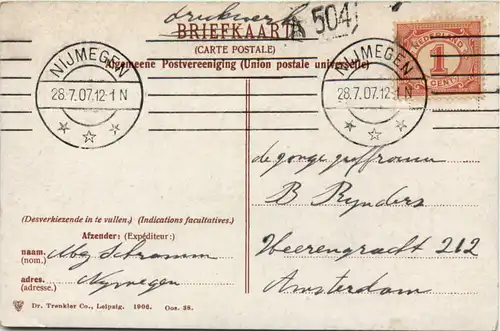 drukwerk
BRIEFKAART
504
(CARTE POSTALE)
Algemeene Postvereeniging (Union postale universelle)
NEDERLAND
1
CENT
NIJMEGEN
28.7.07.12-1 N
NIJMEGEN
28.7.07.12-1 N
de jonge juffrouw
B Rynders
Heerengracht 212
Amsterdam
(Desverkiezende in te vullen.) (Indications facultatives.)
Afzender: (Expéditeur:)
naam. Schramm
(nom.)
adres. Nymegen
(adresse.)
Dr. Trenkler Co., Leipzig. 1906. Oos. 38.